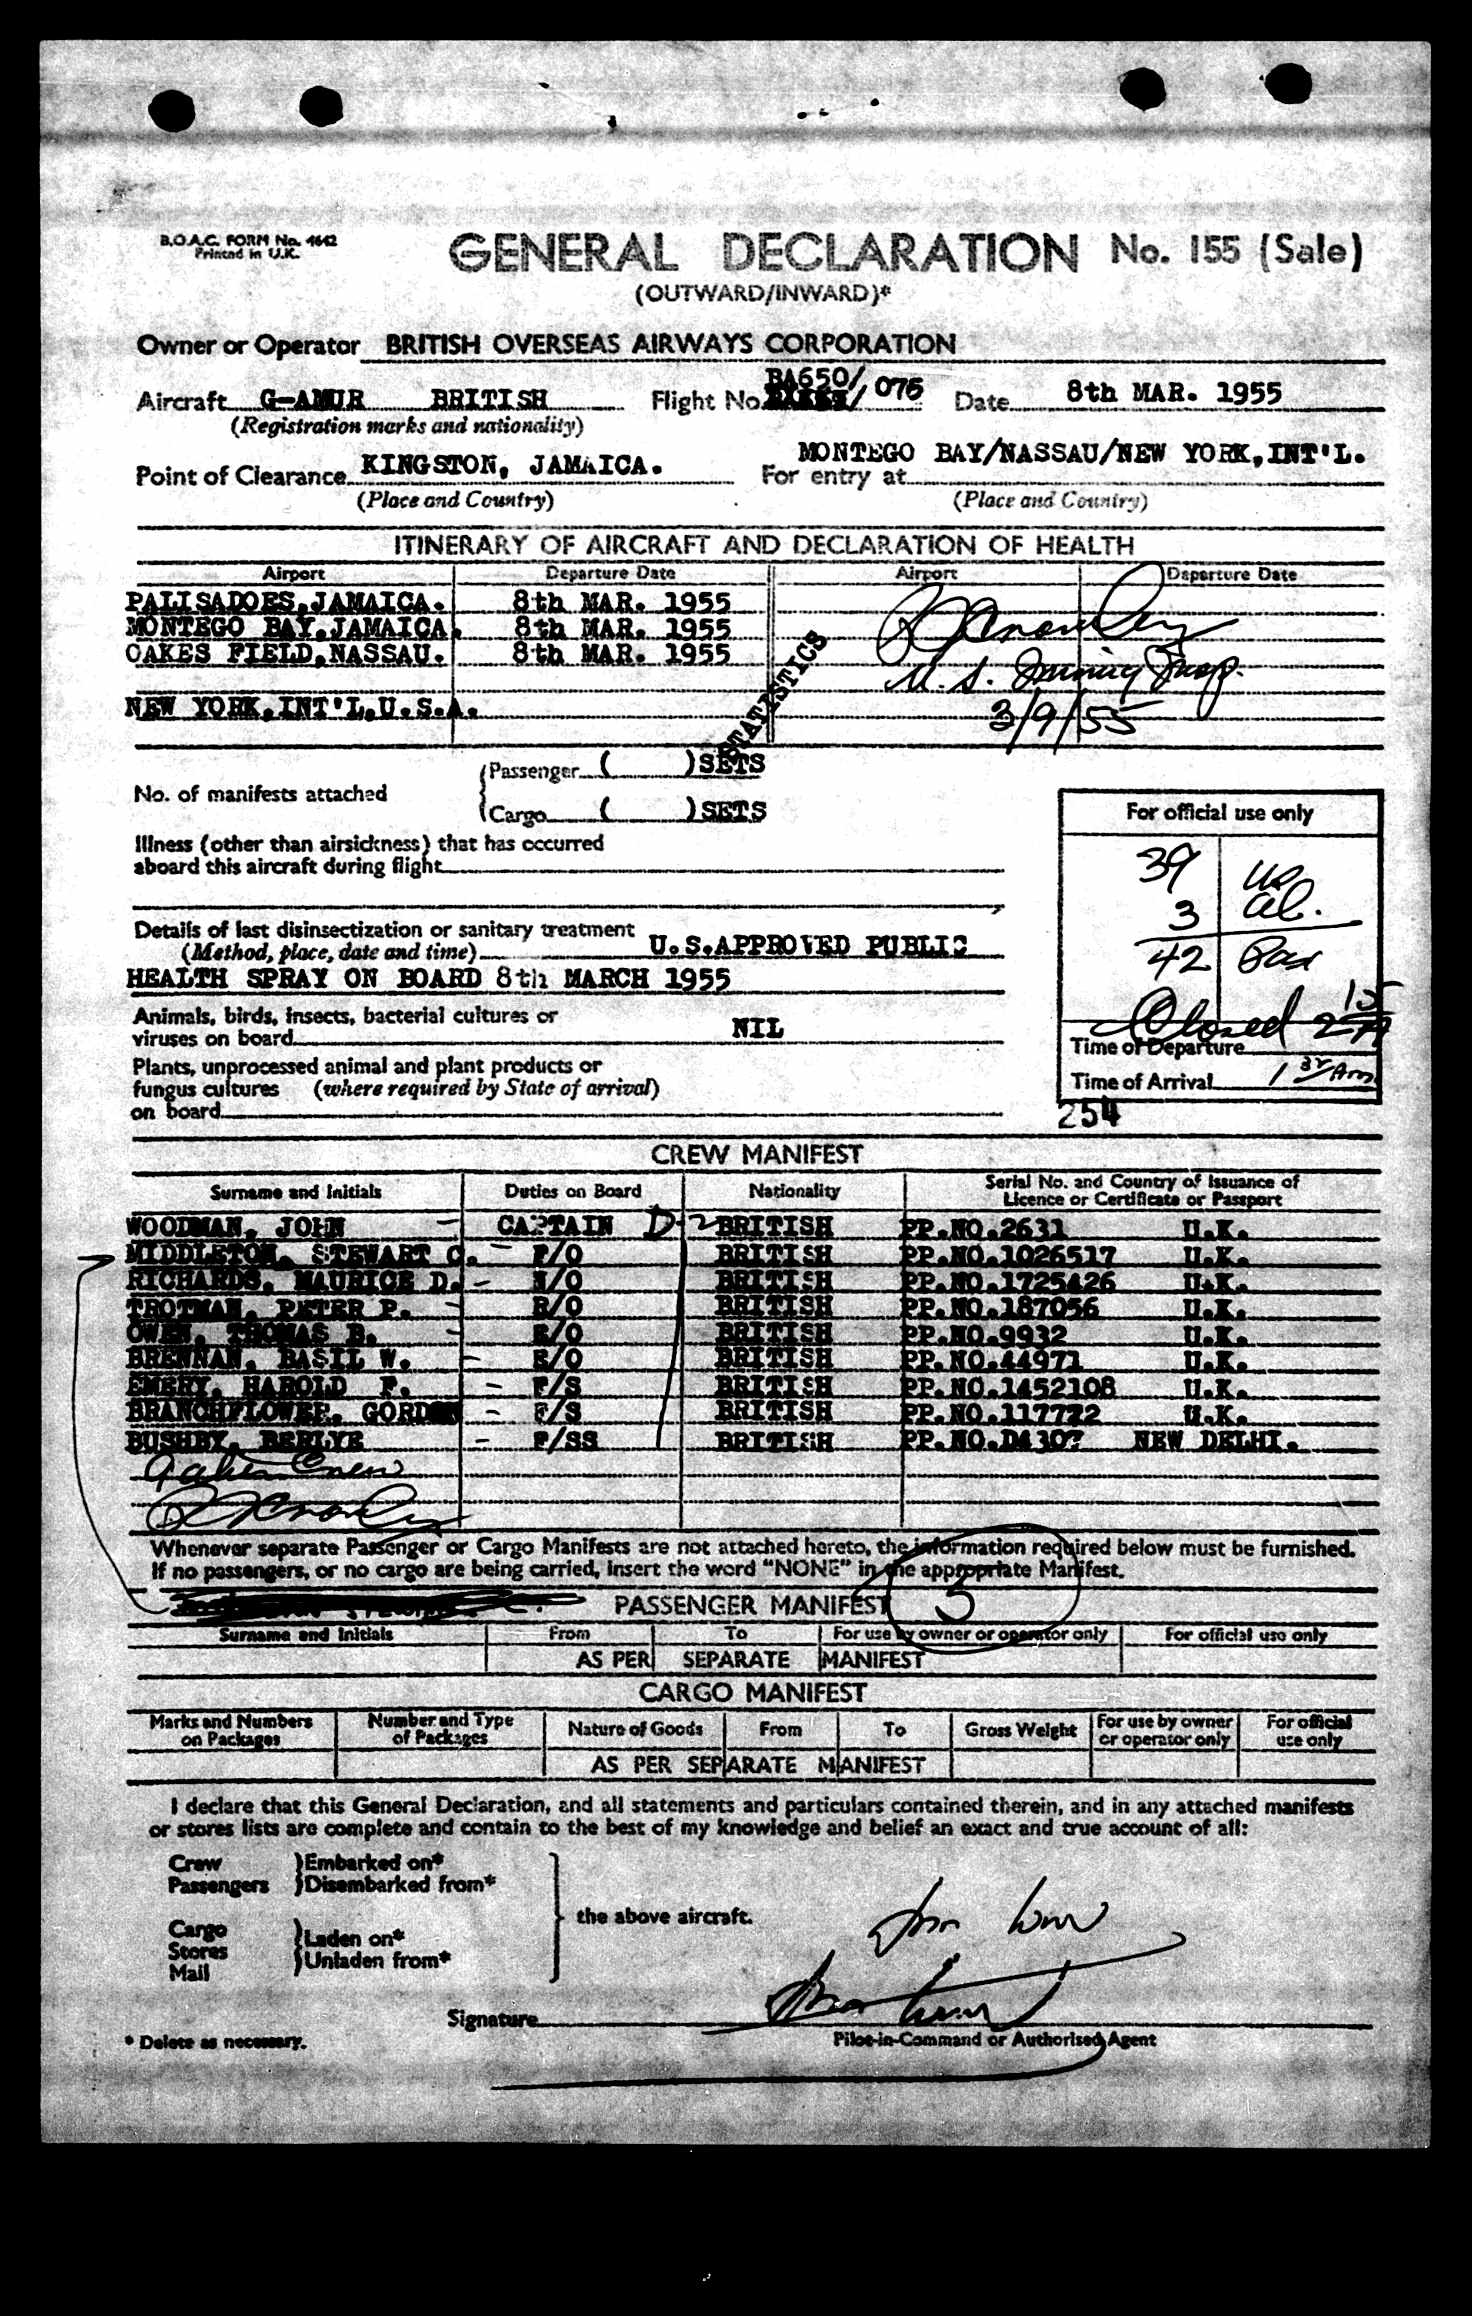 B.O.A.C. FORM No. 4642
Printed in U.K.
GENERAL DECLARATION No. 155 (Sale)
(OUTWARD/INWARD)*
Owner or Operator BRITISH OVERSEAS AIRWAYS CORPORATION
Aircraft G-AMUR BRITISH Flight No. BA650/ 075 Date 8th MAR. 1955
(Registration marks and nationality)
Point of Clearance KINGSTON, JAMAICA. For entry at MONTEGO BAY/NASSAU/NEW YORK,INT'L.
(Place and Country) (Place and Country)
ITINERARY OF AIRCRAFT AND DECLARATION OF HEALTH
Airport Departure Date Airport Departure Date
PALISADOES,JAMAICA. 8th MAR. 1955
MONTEGO BAY,JAMAICA. 8th MAR. 1955
OAKES FIELD,NASSAU. 8th MAR. 1955
U.S. Immig Insp.
NEW YORK,INT'L,U.S.A. 3/9/55
STATISTICS
No. of manifests attached
Passenger ( )SETS
Cargo ( )SETS
For official use only
Illness (other than airsickness) that has occurred
aboard this aircraft during flight
39 US
3 Al.
42 Pax
Closed
Details of last disinsectization or sanitary treatment
(Method, place, date and time) U.S.APPROVED PUBLIC
HEALTH SPRAY ON BOARD 8th MARCH 1955
Animals, birds, insects, bacterial cultures or
viruses on board NIL
Time of Departure
Plants, unprocessed animal and plant products or
fungus cultures (where required by State of arrival)
on board
Time of Arrival 1 Am
254
CREW MANIFEST
Surname and Initials Duties on Board Nationality Serial No. and Country of Issuance of
Licence or Certificate or Passport
WOODMAN, JOHN - CAPTAIN D-2 BRITISH PP.NO.2631 U.K.
MIDDLETON, STEWART C. - F/O BRITISH PP.NO.1026517 U.K.
RICHARDS, MAURICE D. - N/O BRITISH PP.NO.1725426 U.K.
TROTMAN, PETER P. - R/O BRITISH PP.NO.187056 U.K.
OWEN, THOMAS B. - E/O BRITISH PP.NO.9932 U.K.
BRENNAN, BASIL W. - E/O BRITISH PP.NO.44971 U.K.
EMERY, HAROLD F. - F/S BRITISH PP.NO.1452108 U.K.
BRANCHFLOWER, GORDON - F/S BRITISH PP.NO.117772 U.K.
BUSHBY, BERLYE - F/SS BRITISH PP.NO.D4307 NEW DELHI.
9 alien Crew
Whenever separate Passenger or Cargo Manifests are not attached hereto, the information required below must be furnished.
If no passengers, or no cargo are being carried, insert the word "NONE" in the appropriate Manifest.
PASSENGER MANIFEST 3
Surname and Initials From To For use by owner or operator only For official use only
AS PER SEPARATE MANIFEST
CARGO MANIFEST
Marks and Numbers on Packages Number and Type of Packages Nature of Goods From To Gross Weight For use by owner or operator only For official use only
AS PER SEPARATE MANIFEST
I declare that this General Declaration, and all statements and particulars contained therein, and in any attached manifests
or stores lists are complete and contain to the best of my knowledge and belief an exact and true account of all:
Crew
Passengers
Embarked on*
Disembarked from*
Cargo
Stores
Mail
Laden on*
Unladen from*
the above aircraft.
Signature
* Delete as necessary. Pilot-in-Command or Authorised Agent